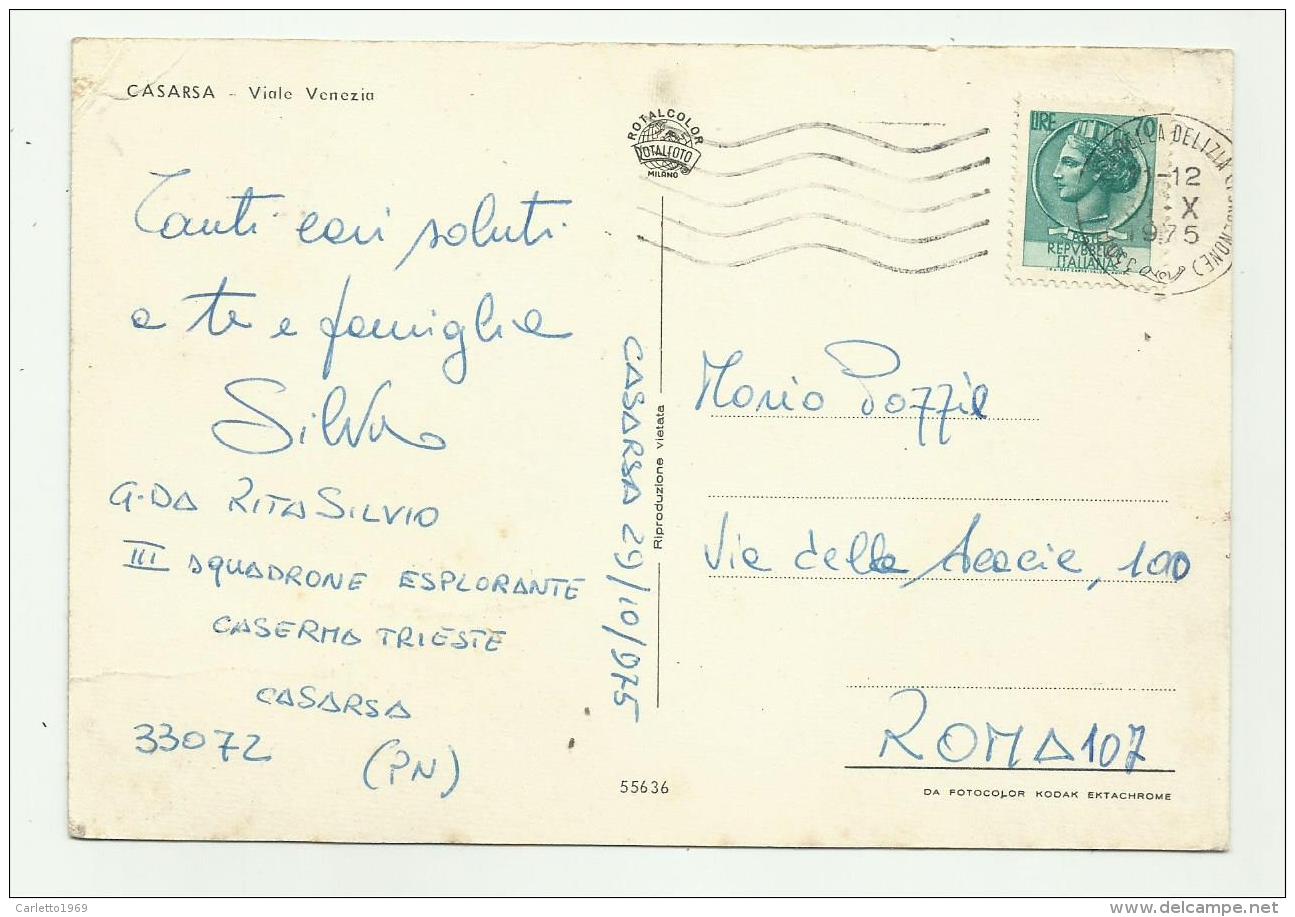 CASARSA - Viale Venezia
Tanti cari saluti
a te e famiglia
Silvio
G.DA RITA SILVIO
III SQUADRONE ESPLORANTE
CASERMA TRIESTE
CASARSA
33072
(PN)
CASARSA 29/10/975
Riproduzione vietata
ROTALCOLOR
ROTALFOTO
MILANO
LIRE 70
REPVBBLICA
ITALIANA
DELIZIA (PORDENONE)
-12
X
1975
Mario
Via delle Acacie, 100
ROMA 107
55636
DA FOTOCOLOR KODAK EKTACHROME
Carletto1969
delcampe.net